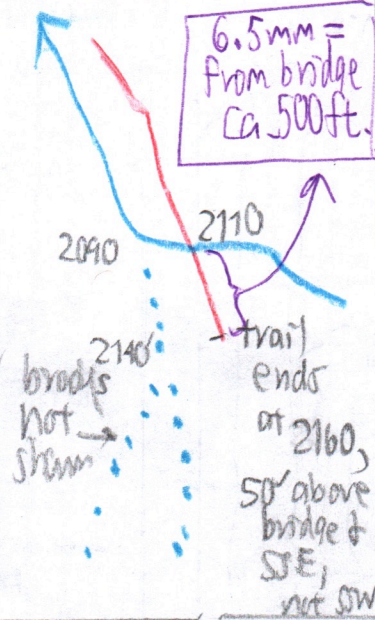 6.5mm =
from bridge
ca. 500ft.
2110
2090
2140'
brooks
not
shown
trail
ends
at 2160,
50' above
bridge &
SSE,
not SSW